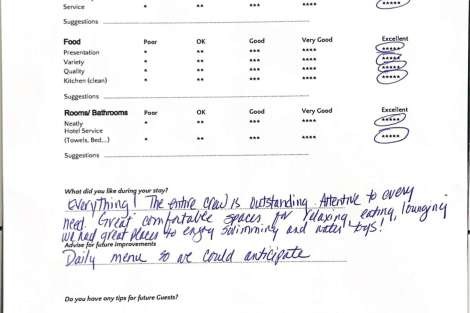 Service * ** *** **** *****
Suggestions
Food Poor OK Good Very Good Excellent
Presentation * ** *** **** *****
Variety * ** *** **** *****
Quality * ** *** **** *****
Kitchen (clean) * ** *** **** *****
Suggestions
Rooms/ Bathrooms Poor OK Good Very Good Excellent
Neatly * ** *** **** *****
Hotel Service
(Towels, Bed...) * ** *** **** *****
Suggestions
What did you like during your stay?
Everything! The entire crew is outstanding. Attentive to every
need. Great comfortable spaces for relaxing, eating, lounging
We had great places to enjoy swimming and water toys!
Advise for future improvements
Daily menu so we could anticipate
Do you have any tips for future Guests?